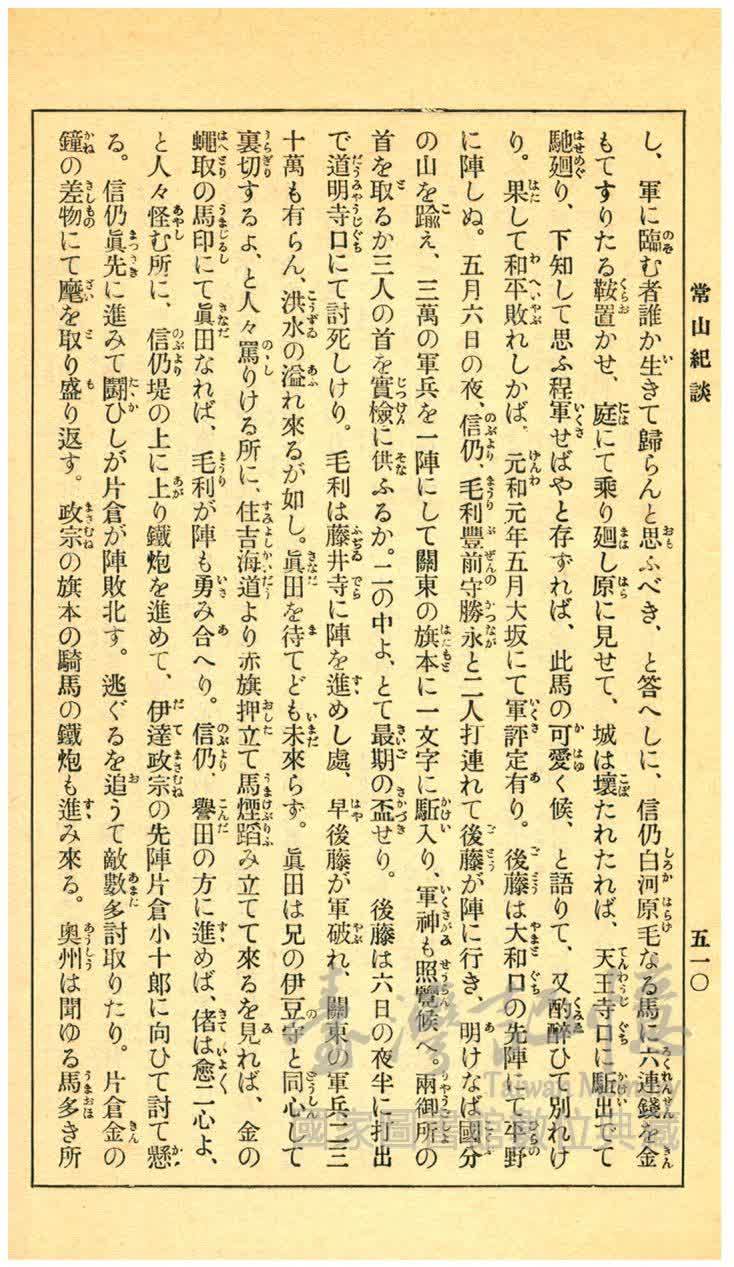 常山紀談
五一〇
し、軍に臨む者誰か生きて歸らんと思ふべき、と答へしに、信仍白河原毛なる馬に六連錢を金
もてすりたる鞍置かせ、庭にて乘り廻し原に見せて、城は壞たれたれば、天王寺口に駈出でて
馳廻り、下知して思ふ程軍せばやと存ずれば、此馬の可愛く候、と語りて、又酌醉ひて別れけ
り。果して和平敗れしかば、元和元年五月大坂にて軍評定有り。後藤は大和口の先陣にて平野
に陣しぬ。五月六日の夜、信仍、毛利豐前守勝永と二人打連れて後藤が陣に行き、明けなば國分
の山を踰え、三萬の軍兵を一陣にして關東の旗本に一文字に駈入り、軍神も照覽候へ。兩御所の
首を取るか三人の首を實檢に供ふるか。二の中よ、とて最期の盃せり。後藤は六日の夜半に打出
で道明寺口にて討死しけり。毛利は藤井寺に陣を進めし處、早後藤が軍破れ、關東の軍兵二三
十萬も有らん、洪水の溢れ來るが如し。眞田を待てども未來らず。眞田は兄の伊豆守と同心して
裏切するよ、と人々罵りける所に、住吉海道より赤旗押立て馬煙蹈み立てて來るを見れば、金の
蠅取の馬印にて眞田なれば、毛利が陣も勇み合へり。信仍、譽田の方に進めば、偖は愈二心よ、
と人々怪む所に、信仍堤の上に上り鐵炮を進めて、伊達政宗の先陣片倉小十郎に向ひて討て懸
る。信仍眞先に進みて鬪ひしが片倉が陣敗北す。逃ぐるを追うて敵數多討取りたり。片倉金の
鐘の差物にて麾を取り盛り返す。政宗の旗本の騎馬の鐵炮も進み來る。奧州は聞ゆる馬多き所
臺灣記憶
Taiwan Memory
國家圖書館數位典藏